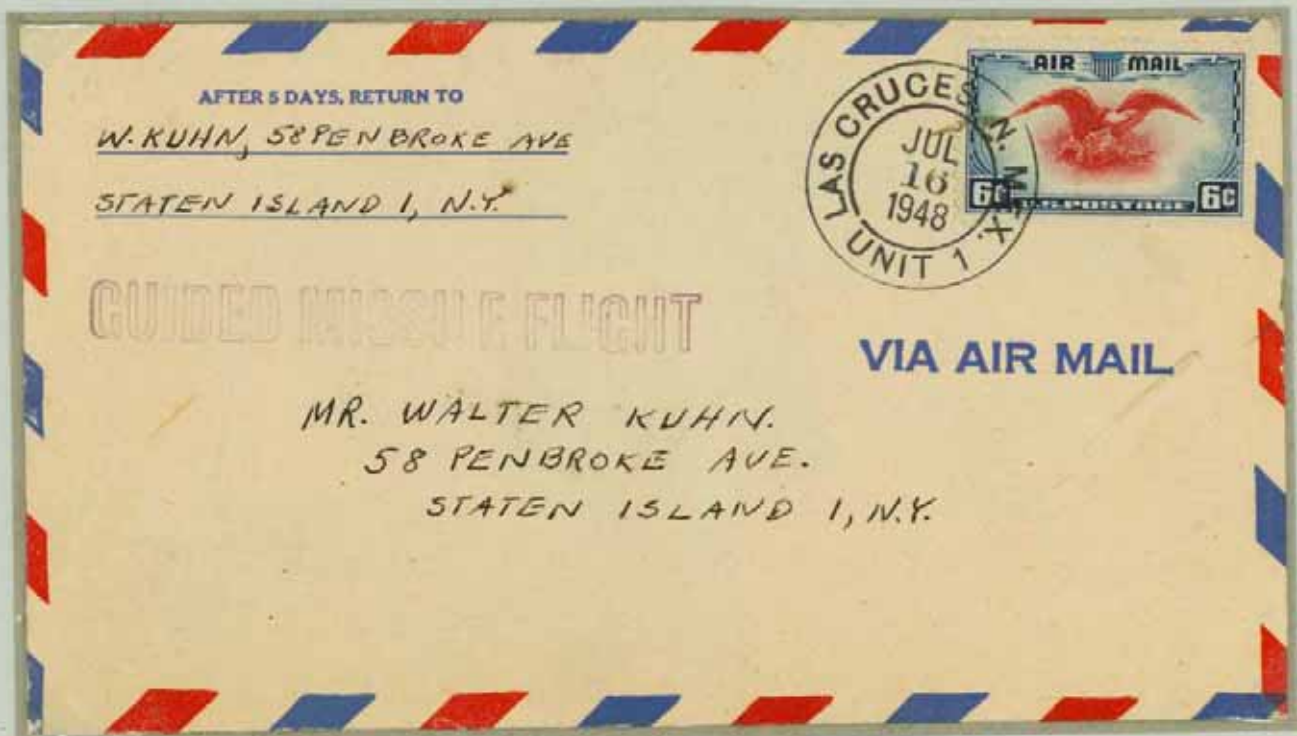 AFTER 5 DAYS, RETURN TO
W. KUHN, 58 PENBROKE AVE
STATEN ISLAND 1, N.Y.
AIR MAIL
6¢ U.S. POSTAGE 6¢
LAS CRUCES N. MEX.
JUL
16
1948
UNIT 1
GUIDED MISSILE FLIGHT
VIA AIR MAIL
MR. WALTER KUHN.
58 PENBROKE AVE.
STATEN ISLAND 1, N.Y.